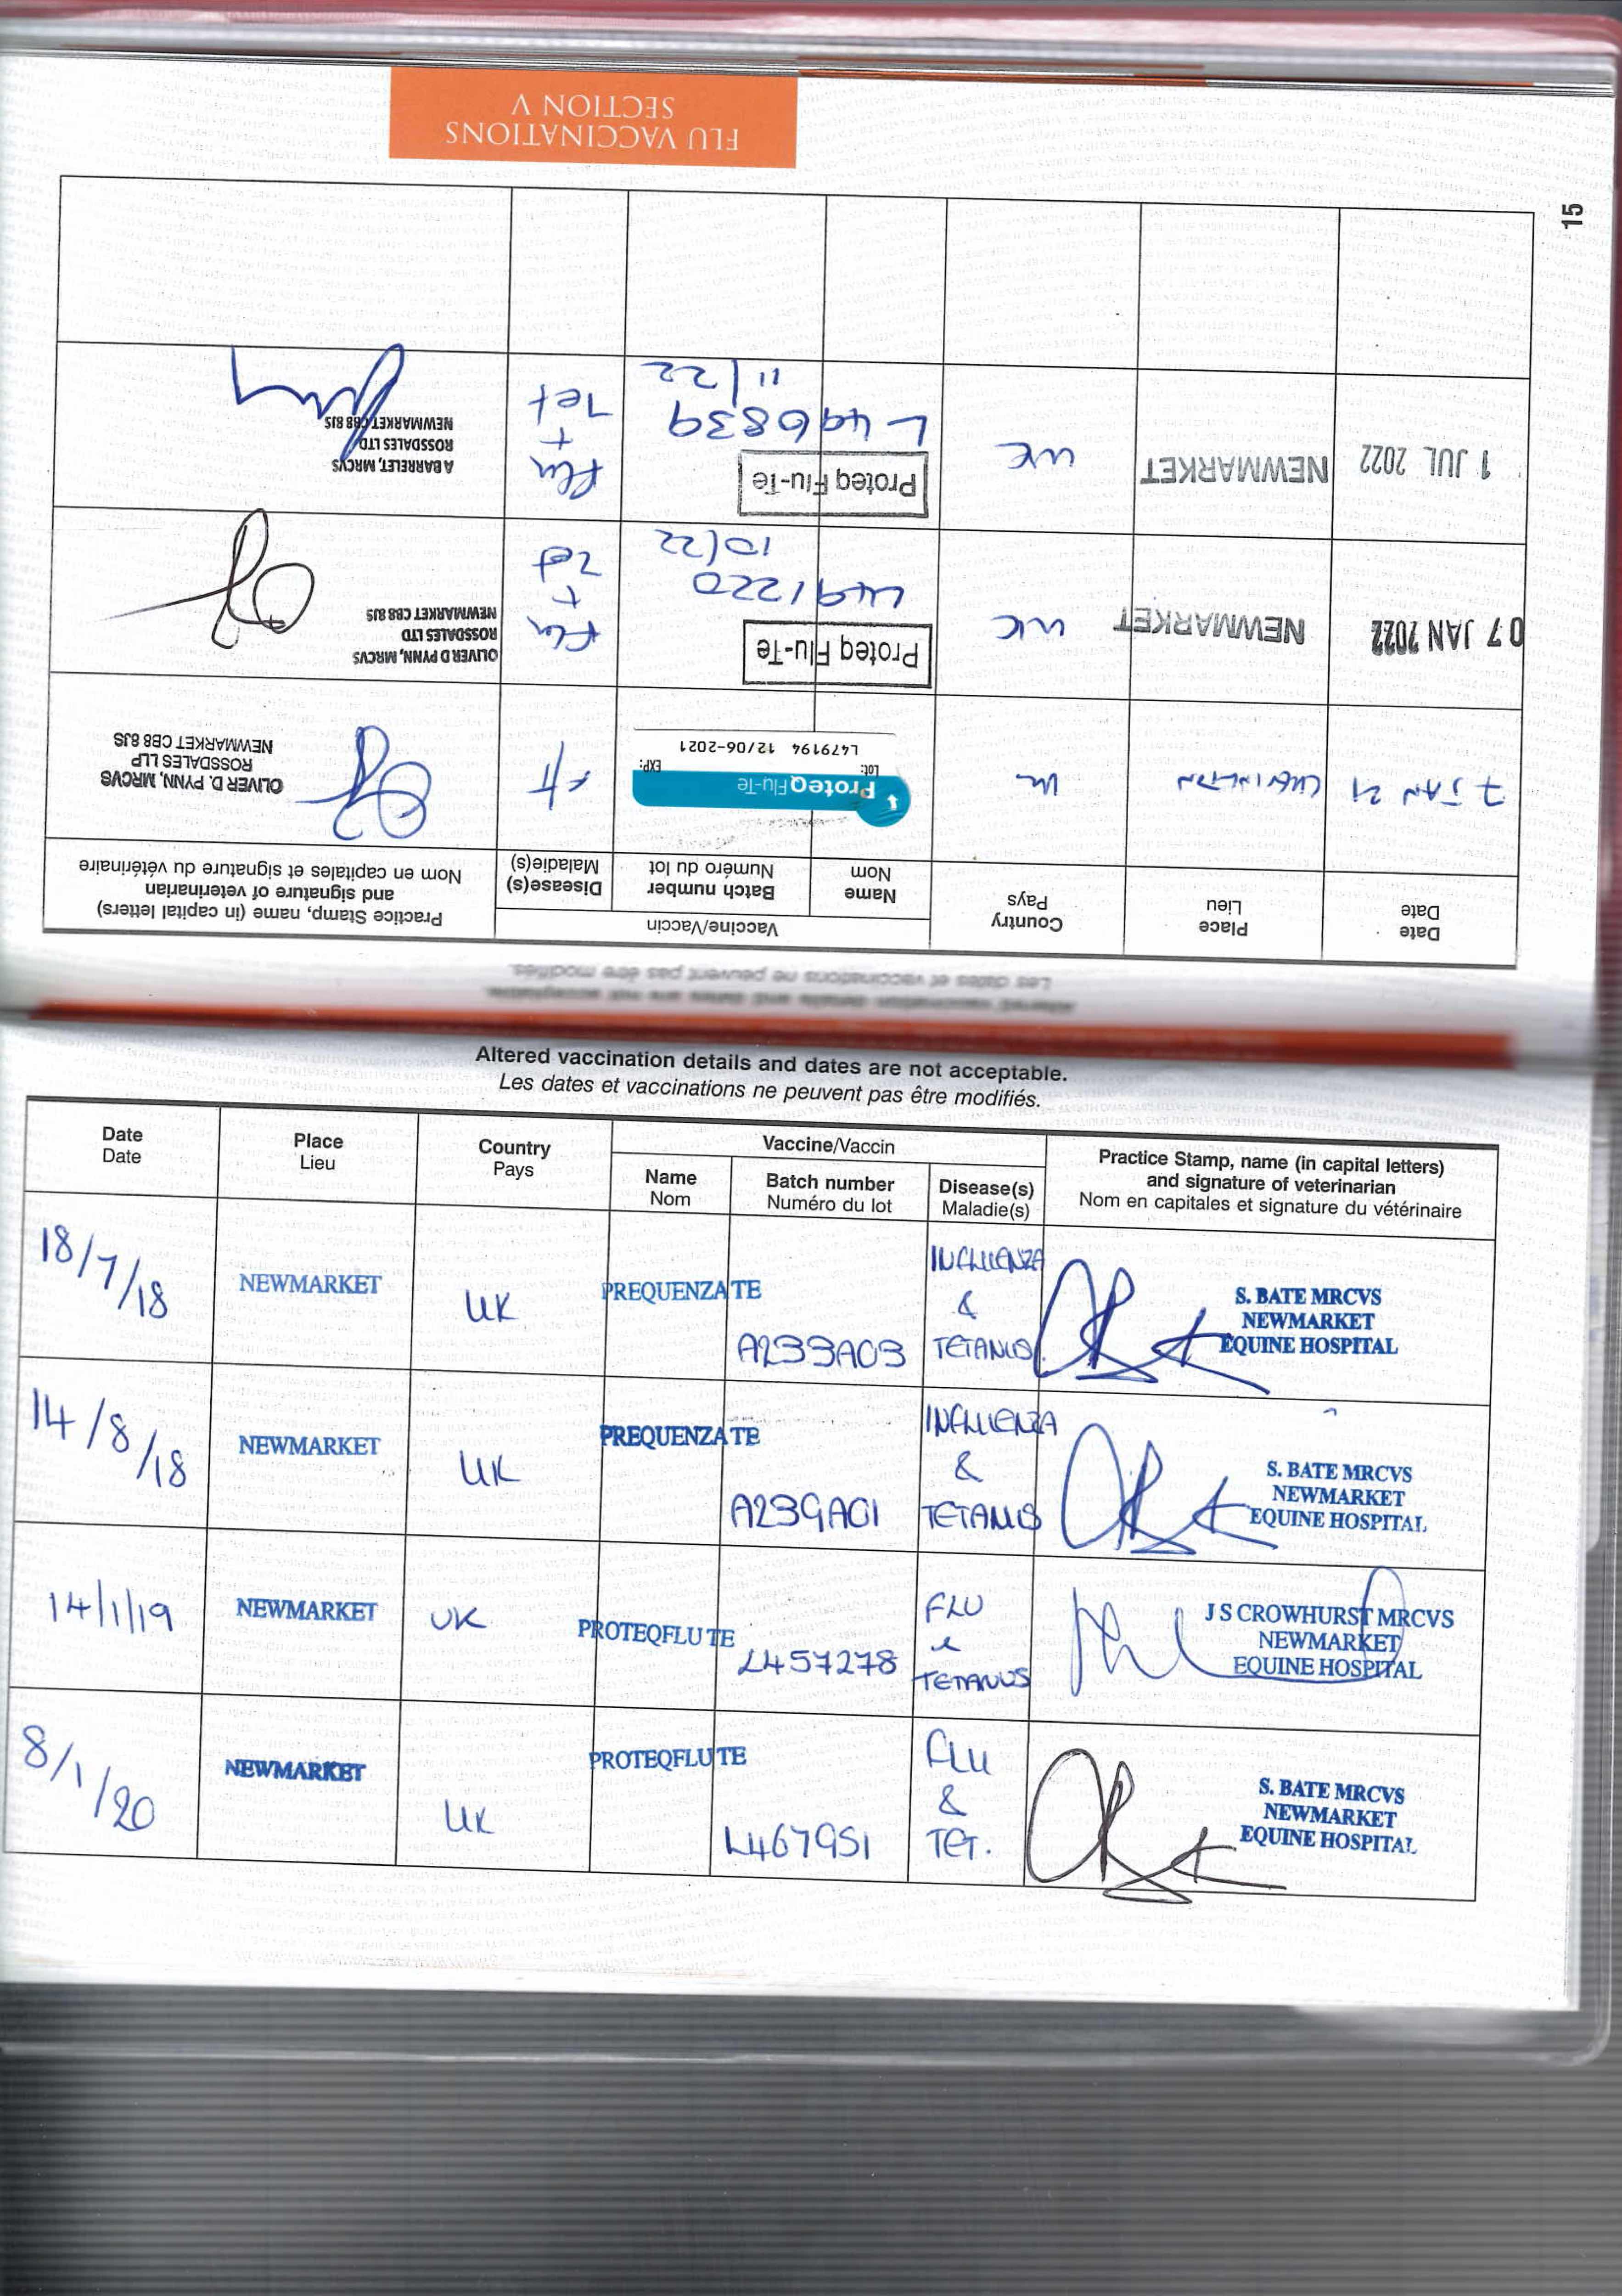 Altered vaccination details and dates are not acceptable.
Les dates et vaccinations ne peuvent pas être modifiés.
Date
Date
Place
Lieu
Country
Pays
Vaccine/Vaccin
Name
Nom
Batch number
Numéro du lot
Disease(s)
Maladie(s)
Practice Stamp, name (in capital letters)
and signature of veterinarian
Nom en capitales et signature du vétérinaire
18/7/18
NEWMARKET
UK
PREQUENZA TE
A233A03
INFLUENZA
&
TETANUS
S. BATE MRCVS
NEWMARKET
EQUINE HOSPITAL
14/8/18
NEWMARKET
UK
PREQUENZA TE
A239A01
INFLUENZA
&
TETANUS
S. BATE MRCVS
NEWMARKET
EQUINE HOSPITAL
14/1/19
NEWMARKET
UK
PROTEQFLU TE
L457278
FLU
&
TETANUS
J S CROWHURST MRCVS
NEWMARKET
EQUINE HOSPITAL
8/1/20
NEWMARKET
UK
PROTEQFLU TE
L467951
FLU
&
TET.
S. BATE MRCVS
NEWMARKET
EQUINE HOSPITAL
Altered vaccination details and dates are not acceptable.
Les dates et vaccinations ne peuvent pas être modifiés.
Date
Date
Place
Lieu
Country
Pays
Vaccine/Vaccin
Name
Nom
Batch number
Numéro du lot
Disease(s)
Maladie(s)
Practice Stamp, name (in capital letters)
and signature of veterinarian
Nom en capitales et signature du vétérinaire
7 JAN 21
UK
ProteqFlu-Te
Lot:
EXP:
L479194 12/06-2021
F/T
OLIVER D. PYNN, MRCVS
ROSSDALES LLP
NEWMARKET CB8 8JS
07 JAN 2022
NEWMARKET
UK
Proteq Flu-Te
L491220
10/22
Flu
+
Tet
OLIVER D PYNN, MRCVS
ROSSDALES LTD
NEWMARKET CB8 8JS
1 JUL 2022
NEWMARKET
UK
Proteq Flu-Te
L496839
11/22
Flu
+
Tet
A BARRELET, MRCVS
ROSSDALES LTD
NEWMARKET CB8 8JS
FLU VACCINATIONS
SECTION V
15